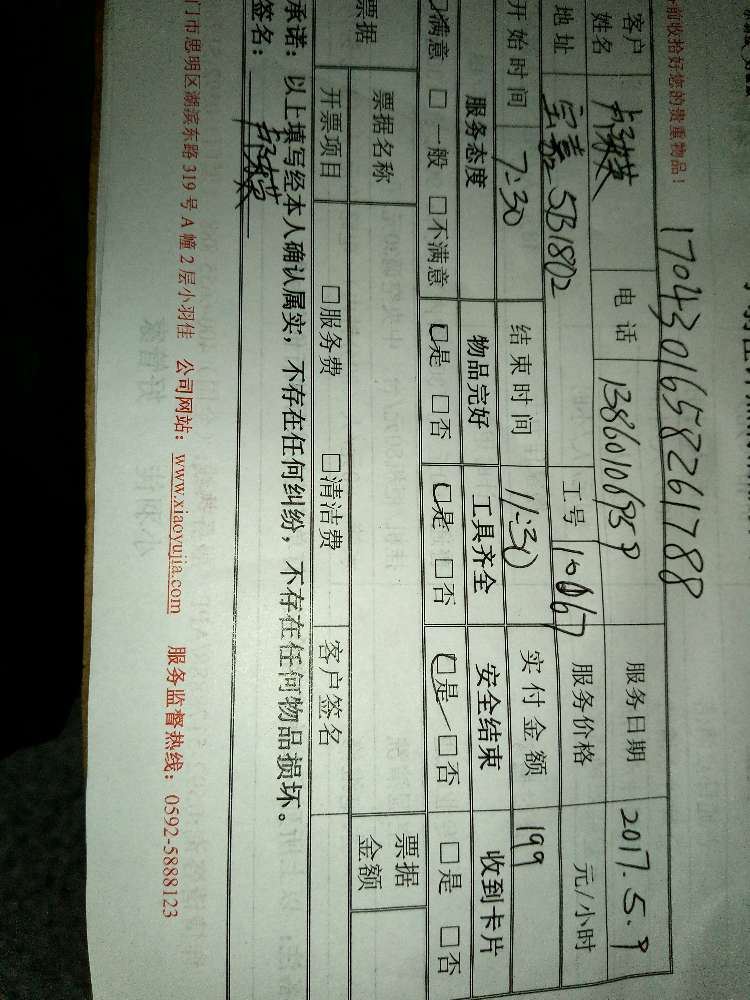 1704301658261788
前收拾好您的贵重物品！
客户姓名 电话 13860106959 服务日期 2017.5.9
地址 宝嘉5B1802 工号 10067 服务价格 元/小时
开始时间 7:30 结束时间 11:30 实付金额 199
服务态度 物品完好 工具齐全 安全结束 收到卡片
□满意 □一般 □不满意 □是 □否 □是 □否 □是 □否 □是 □否
票据 票据名称 票据金额
开票项目 □服务费 □清洁费 客户签名
承诺：以上填写经本人确认属实，不存在任何纠纷，不存在任何物品损坏。
签名：
门市思明区湖滨东路 319 号 A 幢 2 层小羽佳 公司网站：www.xiaoyujia.com 服务监督热线：0592-5888123